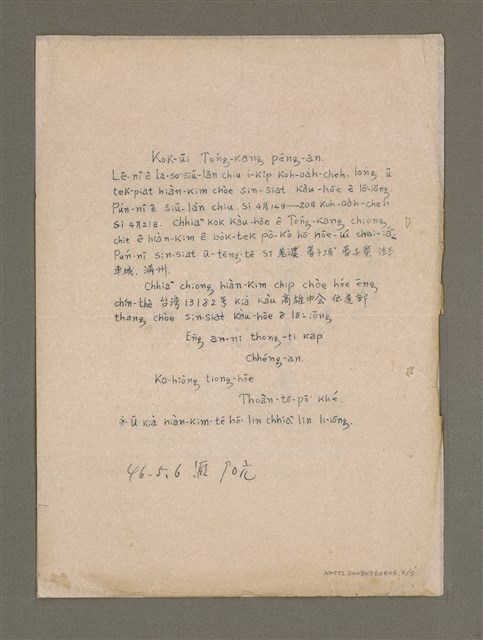 Kok-ūi Tông-kang pêng-an.
Lē-nî ê Iâ-so͘-siū-lān chiu i-kip Koh-oah-cheh, lóng ū
tek-piat hiàn-kim chòe sin-siat kàu-hōe ê lō͘-iōng.
Pún-nî ê Siū-lān chiu sī 4月14日—20日 Koh-oah-cheh
sī 4月21日. Chhiáⁿ kok kàu-hōe ê Tông-kang chiong
chit ê hiàn-kim ê bo̍k-tek pò-kò hō͘ hōe-iú chai-iáⁿ
Pún-nî sin-siat ū-tēng-tē sī 荖濃
車城, 滿州.
Chhiáⁿ chiong hiàn-kim chip chòe hóe ēng
chín-thè 台湾 13182号 kià kàu 高雄中会 伝道部
thang chòe sin-siat kàu-hōe ê lō͘-iōng
Ēng an-ni thong-ti kap
Chhéng-an.
Ko-hiông tiong-hōe
Thoân-tō-pō͘ khé.
※ Ū kià hiàn-kim-tē hō͘ lín chhiáⁿ lín lī-iōng.
46-5.6